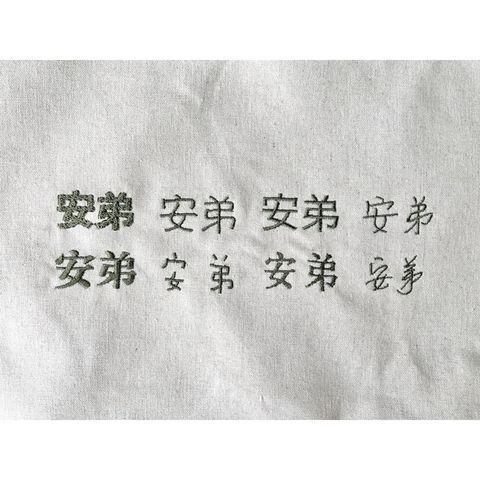 安弟 安弟 安弟 安弟
安弟 安弟 安弟 安弟